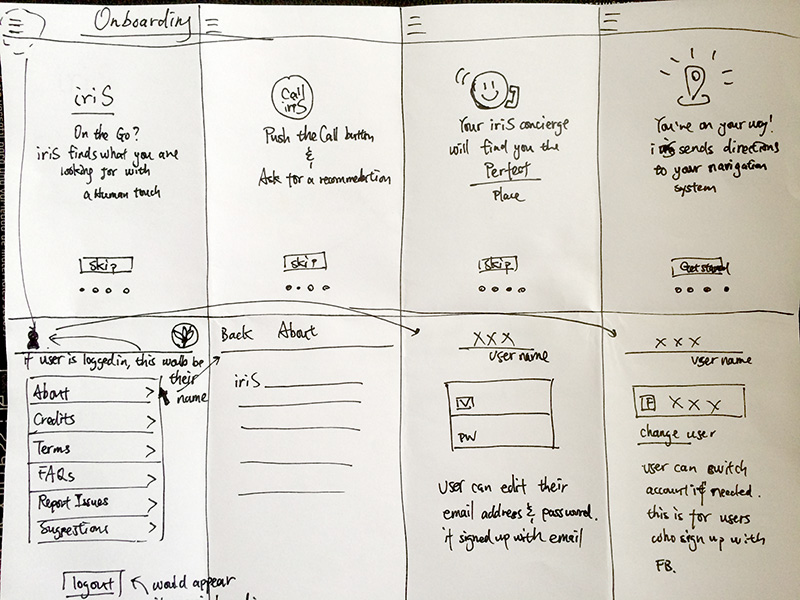 Onboarding
iriS
On the Go?
iriS finds what you are
looking for with
a Human touch
Skip
Call
iriS
Push the Call button
&
Ask for a recommendation
Skip
Your iriS concierge
will find you the
Perfect
Place
Skip
You're on your way!
sends directions
to your navigation
system
Get started
if user is logged in, this would be
their
name
About
Credits
Terms
FAQs
Report Issues
Suggestions
logout
would appear
Back About
iriS
XXX
User name
PW
User can edit their
email address & password.
if signed up with email
XXX
User name
F XXX
change user
user can switch
account if needed.
this is for users
who sign up with
FB.